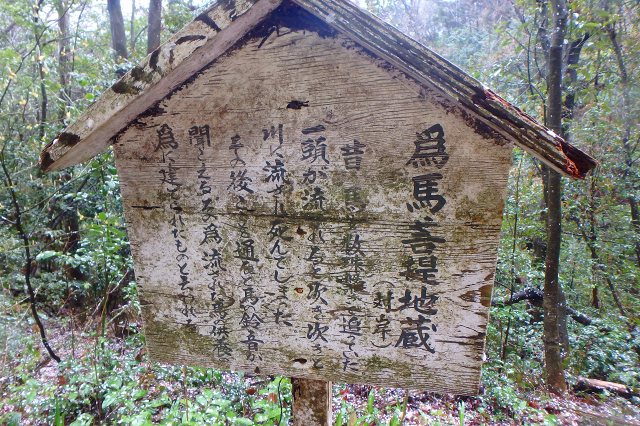 為馬菩提地蔵
(対岸)
昔、馬を数頭追っていた
一頭が流れると次ぎ次ぎと
川へ流され死んでしまった
その後ここを通ると馬鈴の音が
聞こえる為流れた馬
為に建てられたものと